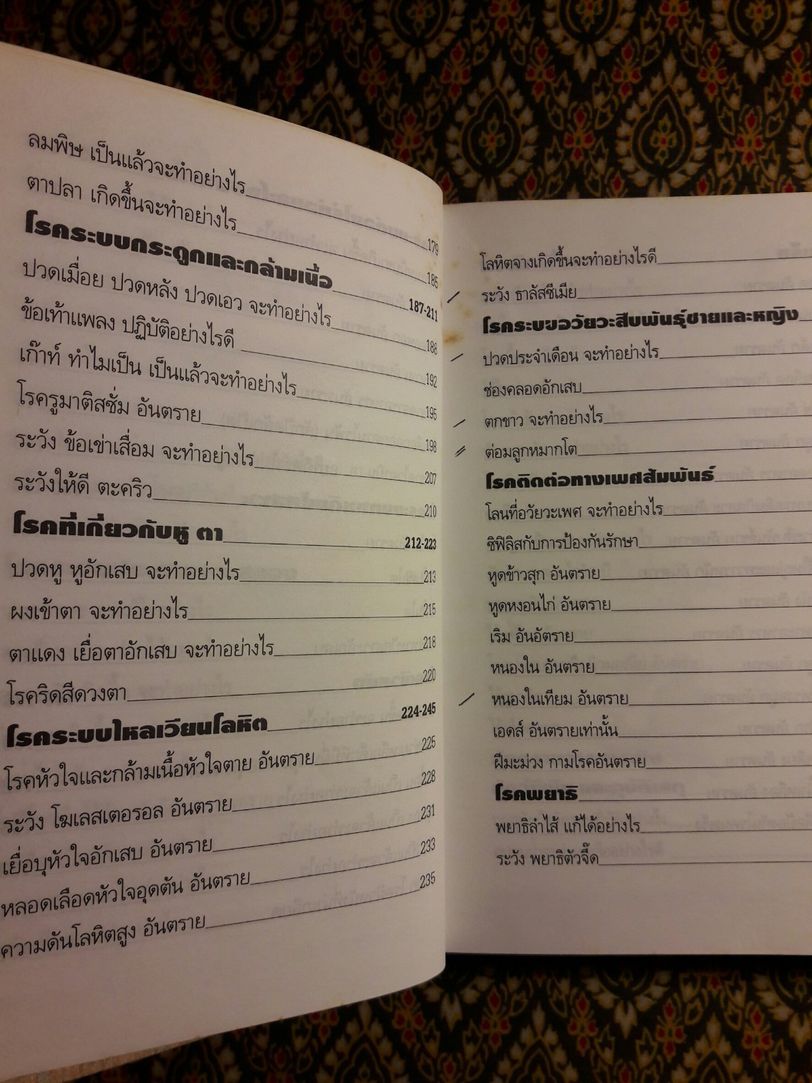 ลมพิษ เป็นแล้วจะทำอย่างไร 179
ตาปลา เกิดขึ้นจะทำอย่างไร 185
โรคระบบกระดูกและกล้ามเนื้อ 187-211
ปวดเมื่อย ปวดหลัง ปวดเอว จะทำอย่างไร 188
ข้อเท้าแพลง ปฏิบัติอย่างไรดี 192
เก๊าท์ ทำไมเป็น เป็นแล้วจะทำอย่างไร 195
โรครูมาติสซั่ม อันตราย 198
ระวัง ข้อเข่าเสื่อม จะทำอย่างไร 207
ระวังให้ดี ตะคริว 210
โรคที่เกี่ยวกับหู ตา 212-223
ปวดหู หูอักเสบ จะทำอย่างไร 213
ผงเข้าตา จะทำอย่างไร 215
ตาแดง เยื่อตาอักเสบ จะทำอย่างไร 218
โรคริดสีดวงตา 220
โรคระบบไหลเวียนโลหิต 224-245
โรคหัวใจและกล้ามเนื้อหัวใจตาย อันตราย 225
ระวัง โฆเลสเตอรอล อันตราย 228
เยื่อบุหัวใจอักเสบ อันตราย 231
หลอดเลือดหัวใจอุดตัน อันตราย 233
ความดันโลหิตสูง อันตราย 235
โลหิตจางเกิดขึ้นจะทำอย่างไรดี
ระวัง ธาลัสซีเมีย
โรคระบบอวัยวะสืบพันธุ์ชายและหญิง
ปวดประจำเดือน จะทำอย่างไร
ช่องคลอดอักเสบ
ตกขาว จะทำอย่างไร
ต่อมลูกหมากโต
โรคติดต่อทางเพศสัมพันธ์
โลนที่อวัยวะเพศ จะทำอย่างไร
ซิฟิลิสกับการป้องกันรักษา
หูดข้าวสุก อันตราย
หูดหงอนไก่ อันตราย
เริม อันอัตราย
หนองใน อันตราย
หนองในเทียม อันตราย
เอดส์ อันตรายเท่านั้น
ฝีมะม่วง กามโรคอันตราย
โรคพยาธิ
พยาธิลำไส้ แก้ได้อย่างไร
ระวัง พยาธิตัวจี๊ด